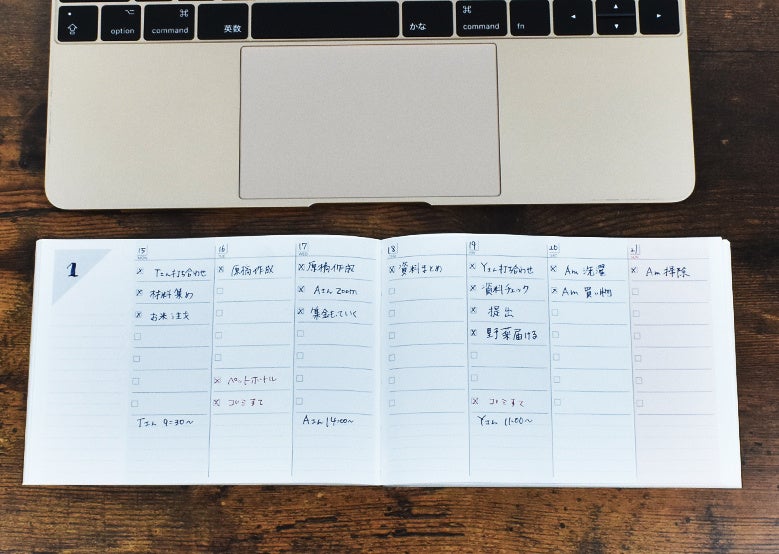 option
⌘
command
英数
かな
⌘
command
fn
1
15
MON
T工ん打ち合わせ
材料集め
お米注文
Tさん 9:30〜
16
TUE
原稿作成
ペットボトル
ゴミすて
17
WED
原稿作成
Aさん Zoom
集金もっていく
Aさん 14:00〜
18
資料まとめ
19
Yさん打ち合わせ
資料チェック
提出
野菜届ける
ゴミすて
Yさん 11:00〜
20
SAT
Am 洗濯
Am 買い物
21
SUN
Am 掃除